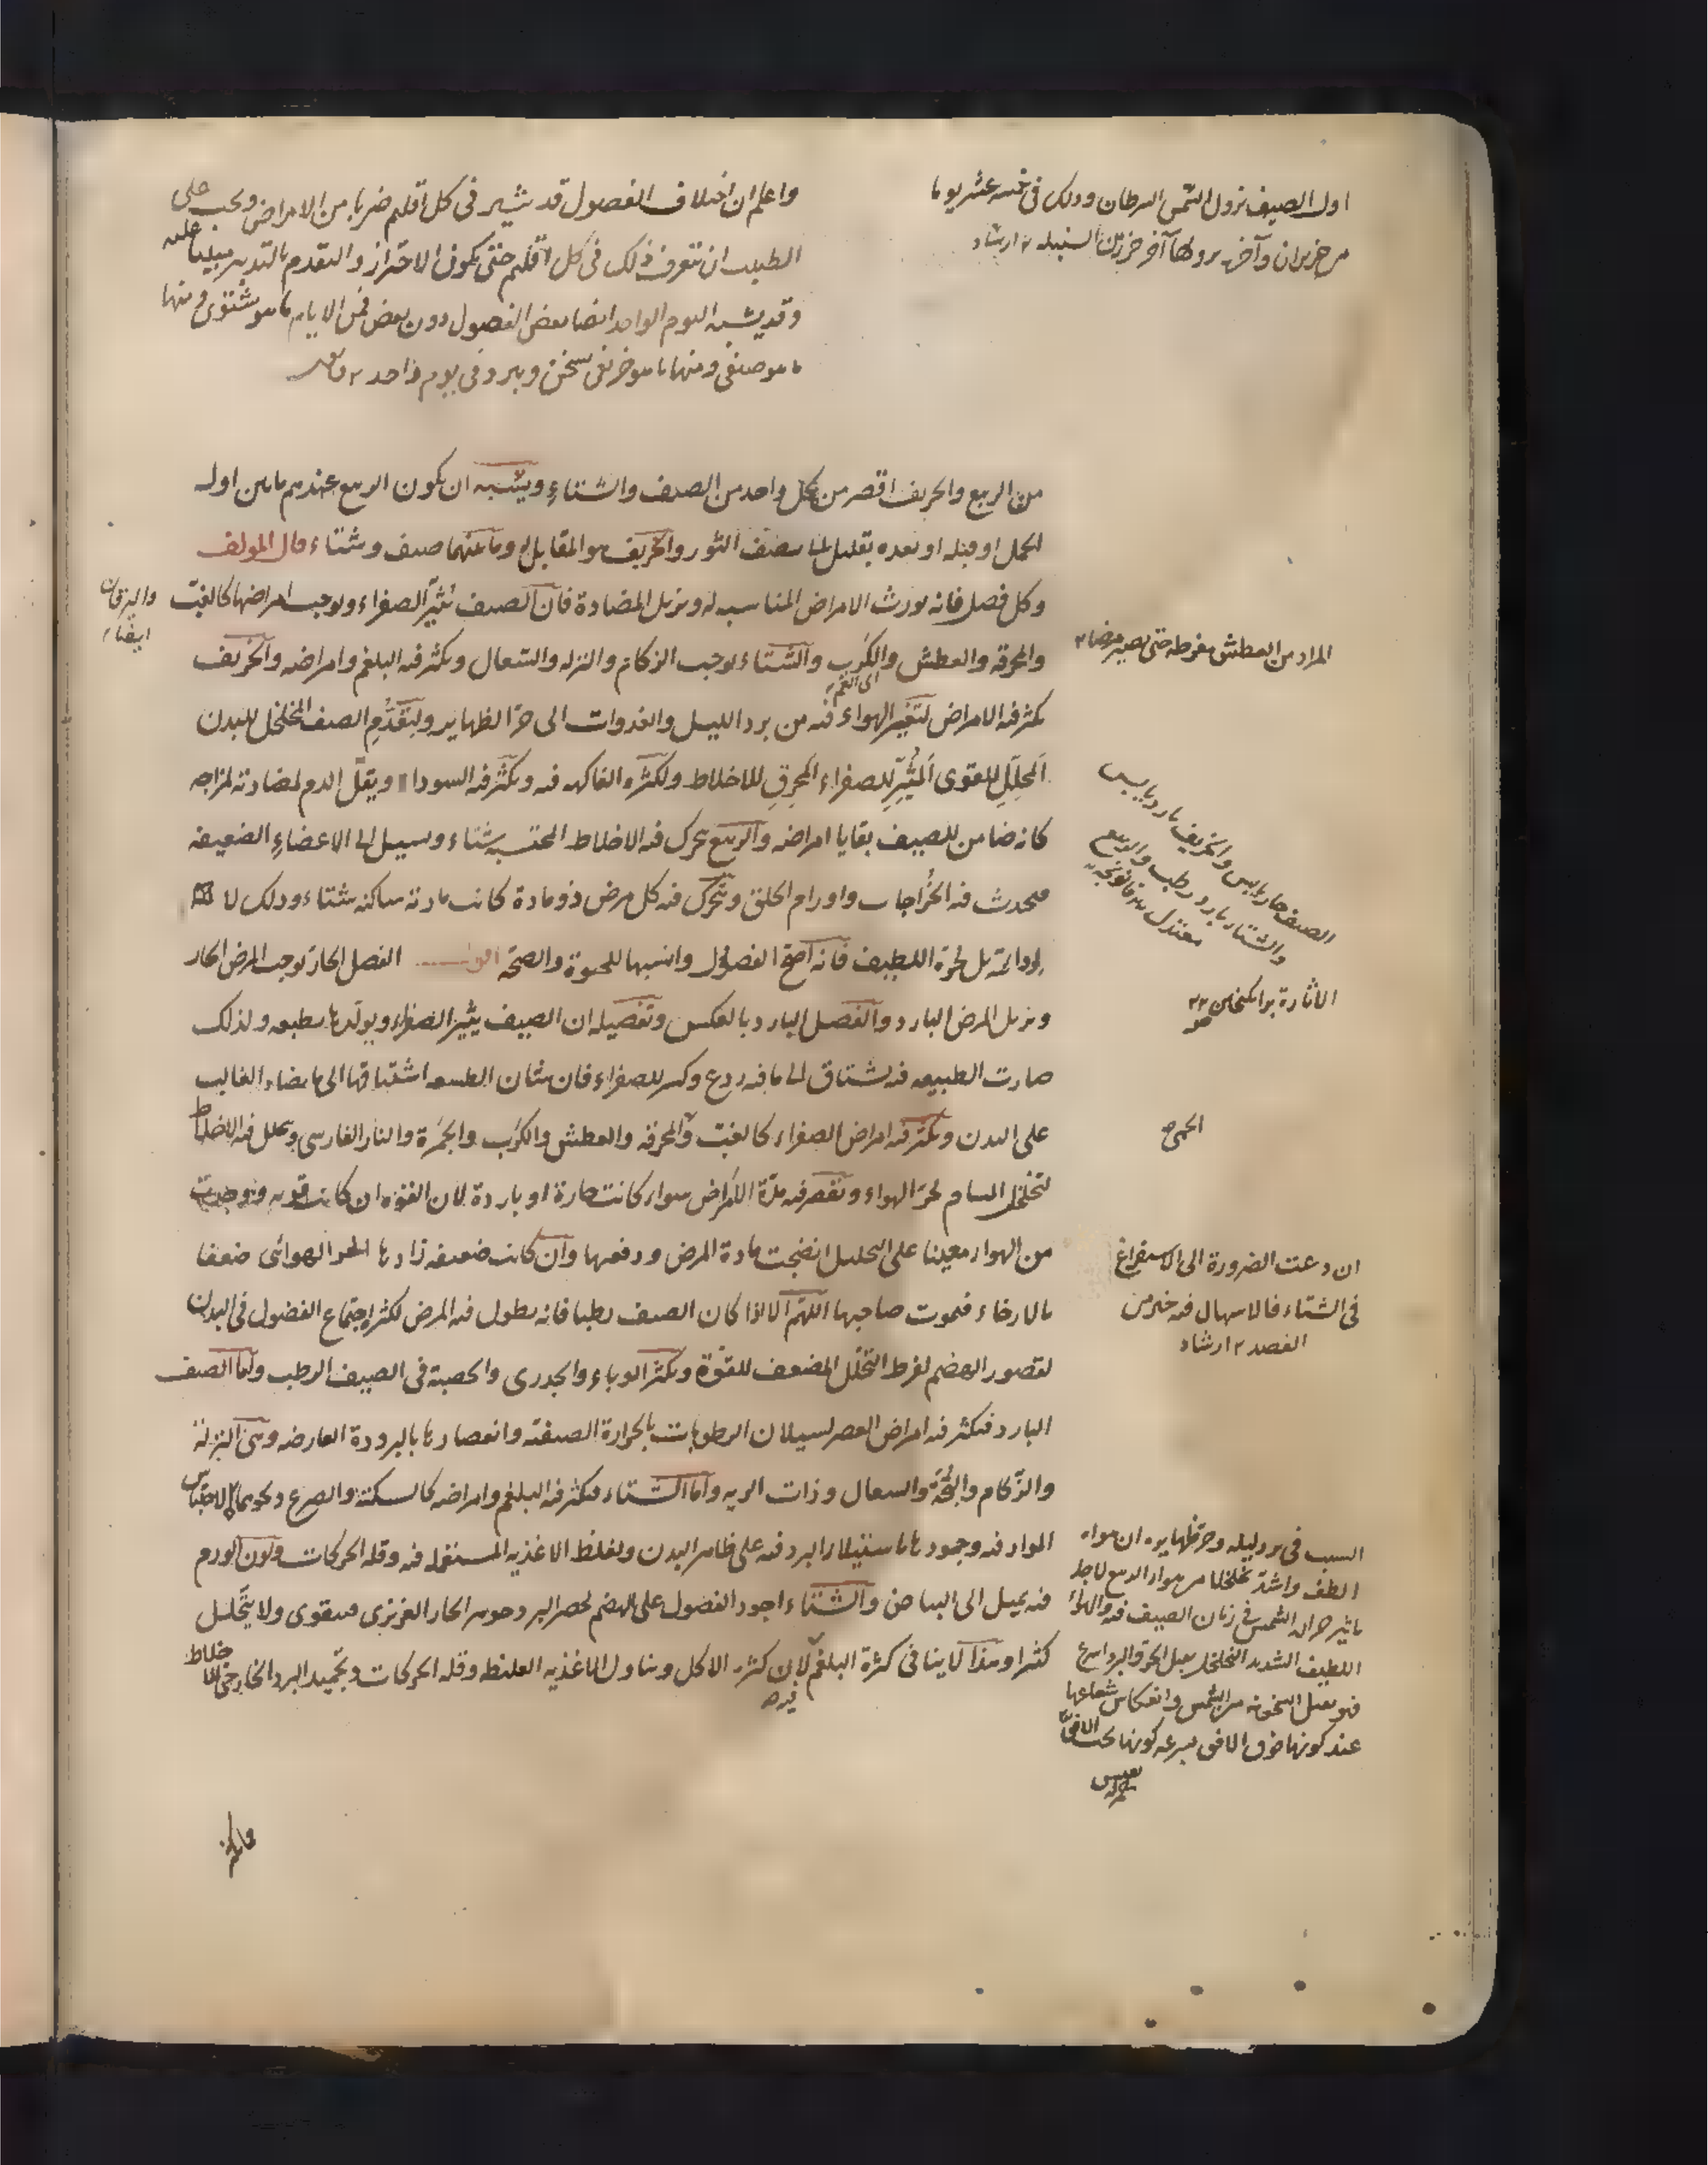 اول الصيف نزول الشمس السرطان وذلك في خمسة عشر يوما
من حزيران وآخره نزولها آخر جزء من السنبلة ١٢ ارشاد
واعلم ان اختلاف الفصول قد يثير في كل اقليم ضربا من الامراض ويجب على
الطبيب ان يتعرف ذلك في كل اقليم حتى يكون الاحتراز والتقدم بالتدبير مبنيا عليه
وقد يشبه اليوم الواحد ايضا بعض الفصول دون بعض فمن الايام ما هو شتوي ومنها
ما هو صيفي ومنها ما هو خريفي يسخن ويبرد في يوم واحد
من الربيع والخريف اقصر من كل واحد من الصيف والشتاء ويشبه ان يكون الربيع عندهم ما بين اول
الحمل او قبله او بعده بقليل الى نصف الثور والخريف هو المقابل له وما عنهما صيف وشتاء قال المولف
وكل فصل فانه يورث الامراض المناسبة له ويزيل المضادة فان الصيف يثير الصفراء ويوجب امراضها كالغب
واليرقان
ايضا
والمحرقة والعطش والكرب والشتاء يوجب الزكام والنزلة والسعال ويكثر فيه البلغم وامراضه والخريف
اى الغم
المراد من العطش مفرطه حتى يصير مرضا ١٢
يكثر فيه الامراض لتغير الهواء فيه من برد الليل والغدوات الى حر الظهاير ولتقدم الصيف المخلخل للبدن
المحلل للقوى المثير للصفراء المحرق للاخلاط ولكثرة الفاكهه فيه ويكثر فيه السوداء ويقل الدم لمضادته لمزاجه
كانه ضامن للصيف بقايا امراضه والربيع يحرك فيه الاخلاط المحتبسة شتاء ويسيل الى الاعضاء الضعيفه
الصيف حار يابس والخريف بارد يابس
والشتاء بارد رطب والربيع
معتدل
فيحدث فيه الخراجات واورام الحلق ويتحرك فيه كل مرض ذو مادة كانت مادته ساكنه شتاء وذلك لا
لرداءته بل لحره اللطيف فانه اصح الفصول وانسبها للحيوة والصحة اقول الفصل الحار يوجب المرض الحار
الاثارة برانكيختن ١٢
ويزيل المرض البارد والفصل البارد بالعكس وتفصيله ان الصيف يثير الصفراء ويولدها بطبعه ولذلك
صارت الطبيعه فيه تشتاق الى ما فيه ردع وكسر للصفراء فان شان الطبيعه اشتياقها الى ما يضاد الغالب
على البدن ويكثر فيه امراض الصفراء كالغب والمحرقه والعطش والكرب والجمرة والنار الفارسى ويتحلل فيه الاخلاط
الحمى
لتخلخل المسام لحر الهواء ويقصر فيه مدة الامراض سواء كانت حارة او باردة لان القوة ان كانت قويه ووجدت
من الهواء معينا على التحليل انضجت مادة المرض ودفعها وان كانت ضعيفه زادها الحر الهوائى ضعفا
ان دعت الضرورة الى الاستفراغ
في الشتاء فالاسهال فيه خير من
الفصد ١٢ ارشاد
بالارخاء فيموت صاحبها اللهم الا اذا كان الصيف رطبا فانه يطول فيه المرض لكثرة اجتماع الفضول في البدن
لقصور الهضم لفرط التحلل المضعف للقوة ويكثر الوباء والجدرى والحصبة في الصيف الرطب واما الصيف
البارد فيكثر فيه امراض العصر لسيلان الرطوبات بالحرارة الصيفيه وانعصارها بالبرودة العارضه وهى النزلة
والزكام والبحة والسعال وذات الريه واما الشتاء فيكثر فيه البلغم وامراضه كالسكتة والصرع ونحوهما لاحتباس
المواد فيه وجمودها باستيلاء البرد فيه على ظاهر البدن ولغلظ الاغذيه المستعمله فيه وقله الحركات ولون الورم
فيه يميل الى البياض والشتاء اجود الفصول على الهضم لحصر البرد جوهر الحار الغريزى فيقوى ولا يتحلل
كثيرا وهذا لا ينافي كثرة البلغم لان كثرة الاكل وتناول الاغذيه الغليظه وقله الحركات وتجميد البرد الخارجى للاخلاط
فيه
السبب في برد ليله وحر ظهايره ان هواء
الطف واشد تخلخلا من هواء الربيع لاجل
تاثير حرارة الشمس في زمان الصيف فيه والهواء
اللطيف الشديد التخلخل يقبل الحر والبرد اسرع
فهو يقبل السخونه من الشمس وانعكاس شعاعها
عند كونها فوق الافق بسرعه كونها تحت الافق